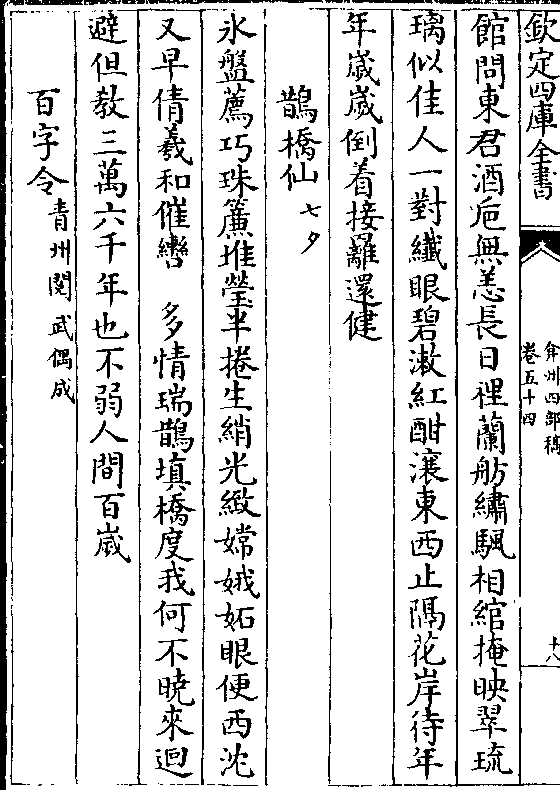 欽定四庫全書
弇州四部稿
卷五十四
十八
館問東君酒巵無恙長日裡蘭舫繡颿相綰掩映翠琉
璃似佳人一對纖眼碧漱紅酣瀼東西止隔花岸待年
年歲歲倒着接䍦還健
鵲橋仙七夕
氷盤薦巧珠簾堆瑩半捲生綃光緻嫦娥妬眼便西沈
又早倩羲和催轡　多情瑞鵲填橋度我何不曉來迴
避但教三萬六千年也不弱人間百歲
百字令青州閱武偶成